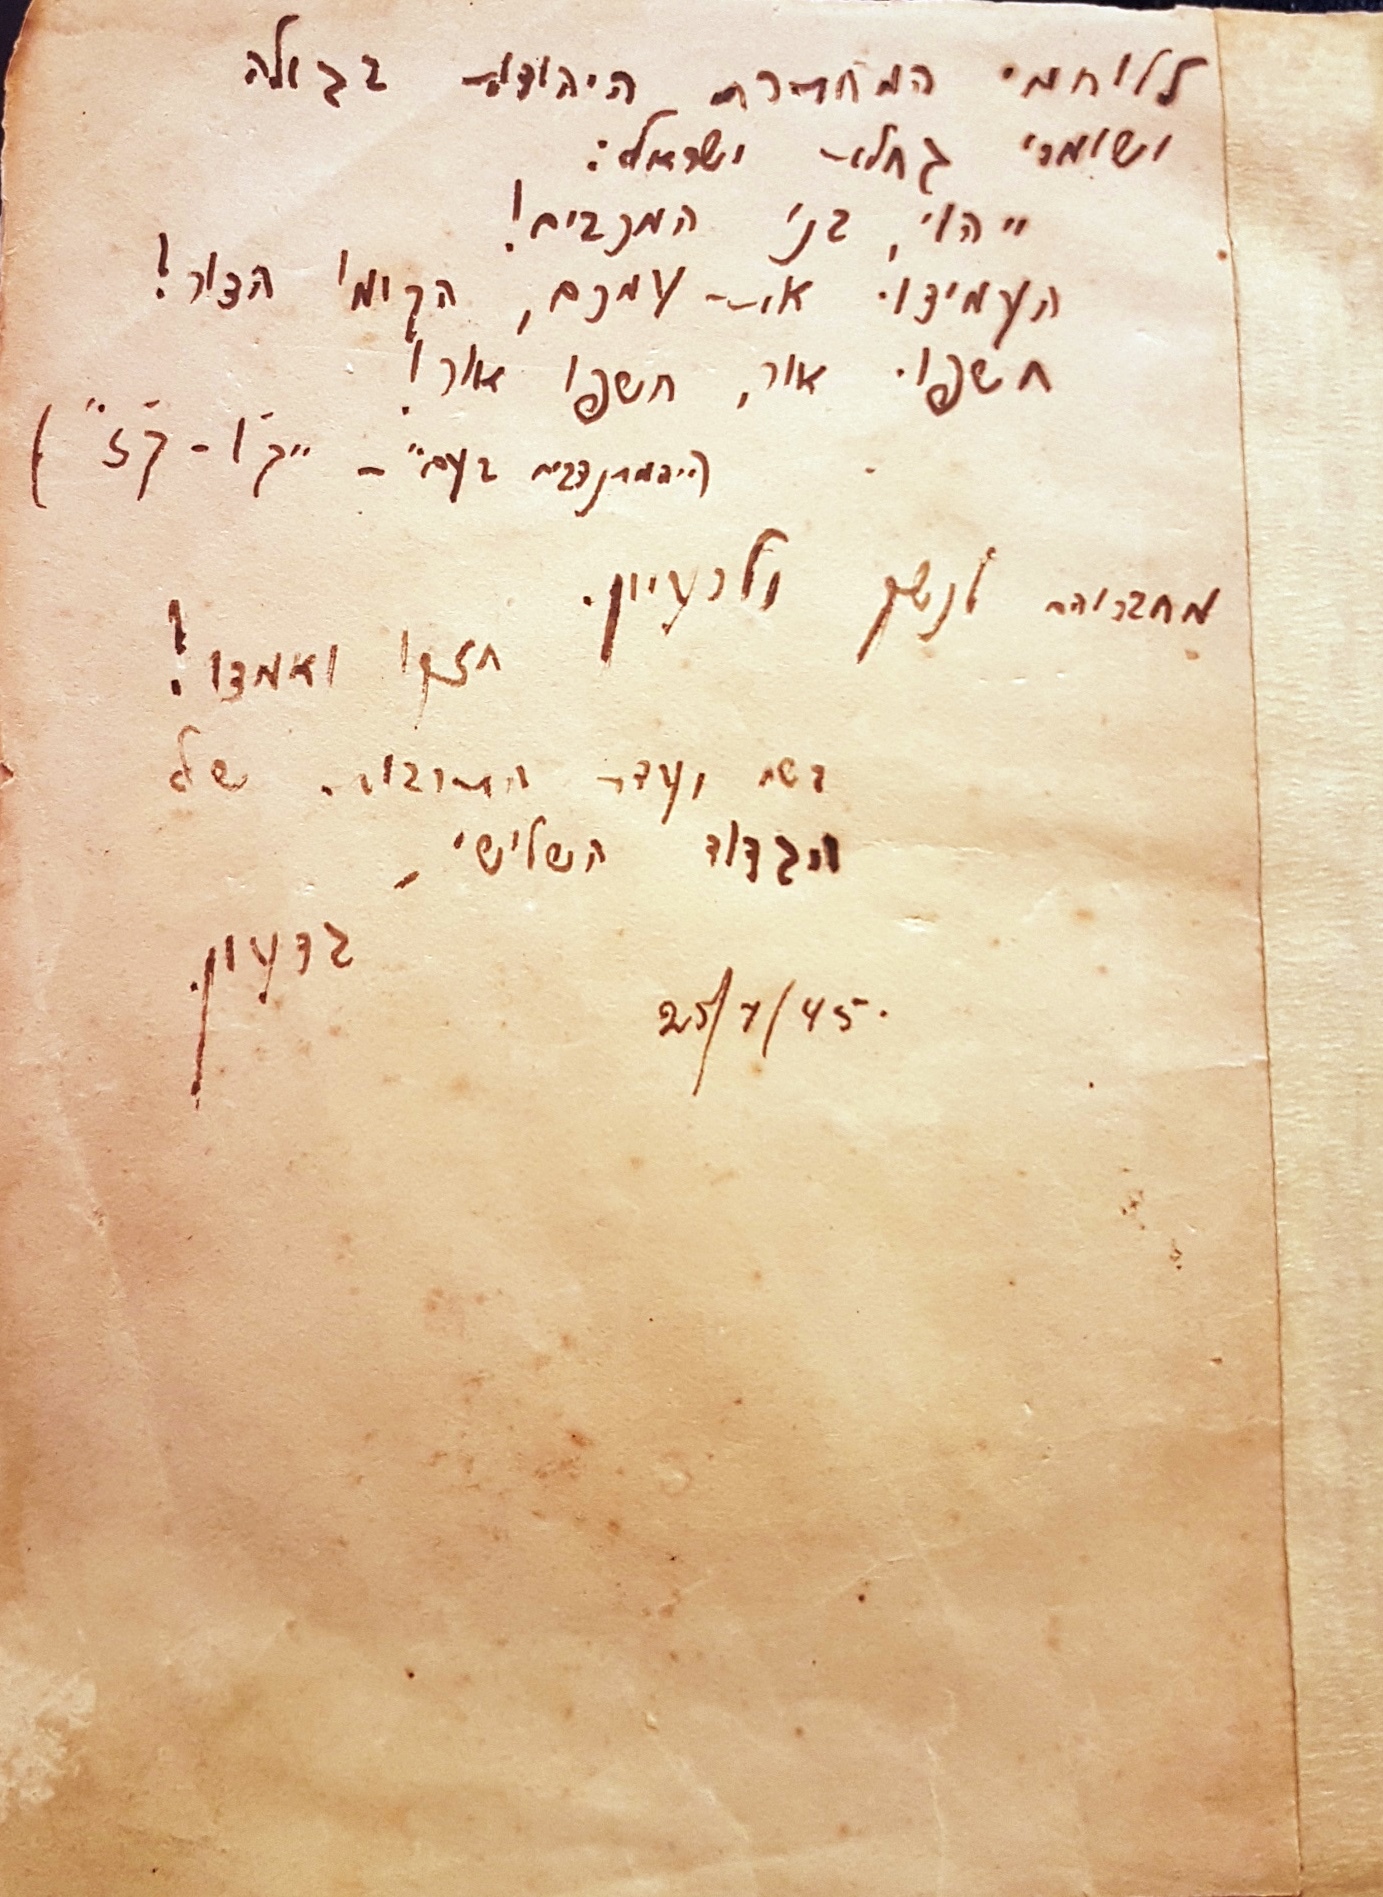 ללוחמי המחתרת היהודית בגולה
ושומרי גחלת ישראל:
"הוי, בני המכבים!
העמידו את עמכם, הקימו הדור!
חשפו אור, חשפו אור!
("המתנדבים בעם" – "ק"ו - ק"ז")
מחבריהם לנשק ולרעיון.
חזקו ואמצו!
בשם ועדת התרבות של
הגדוד השלישי
גדעון.
25/7/45.